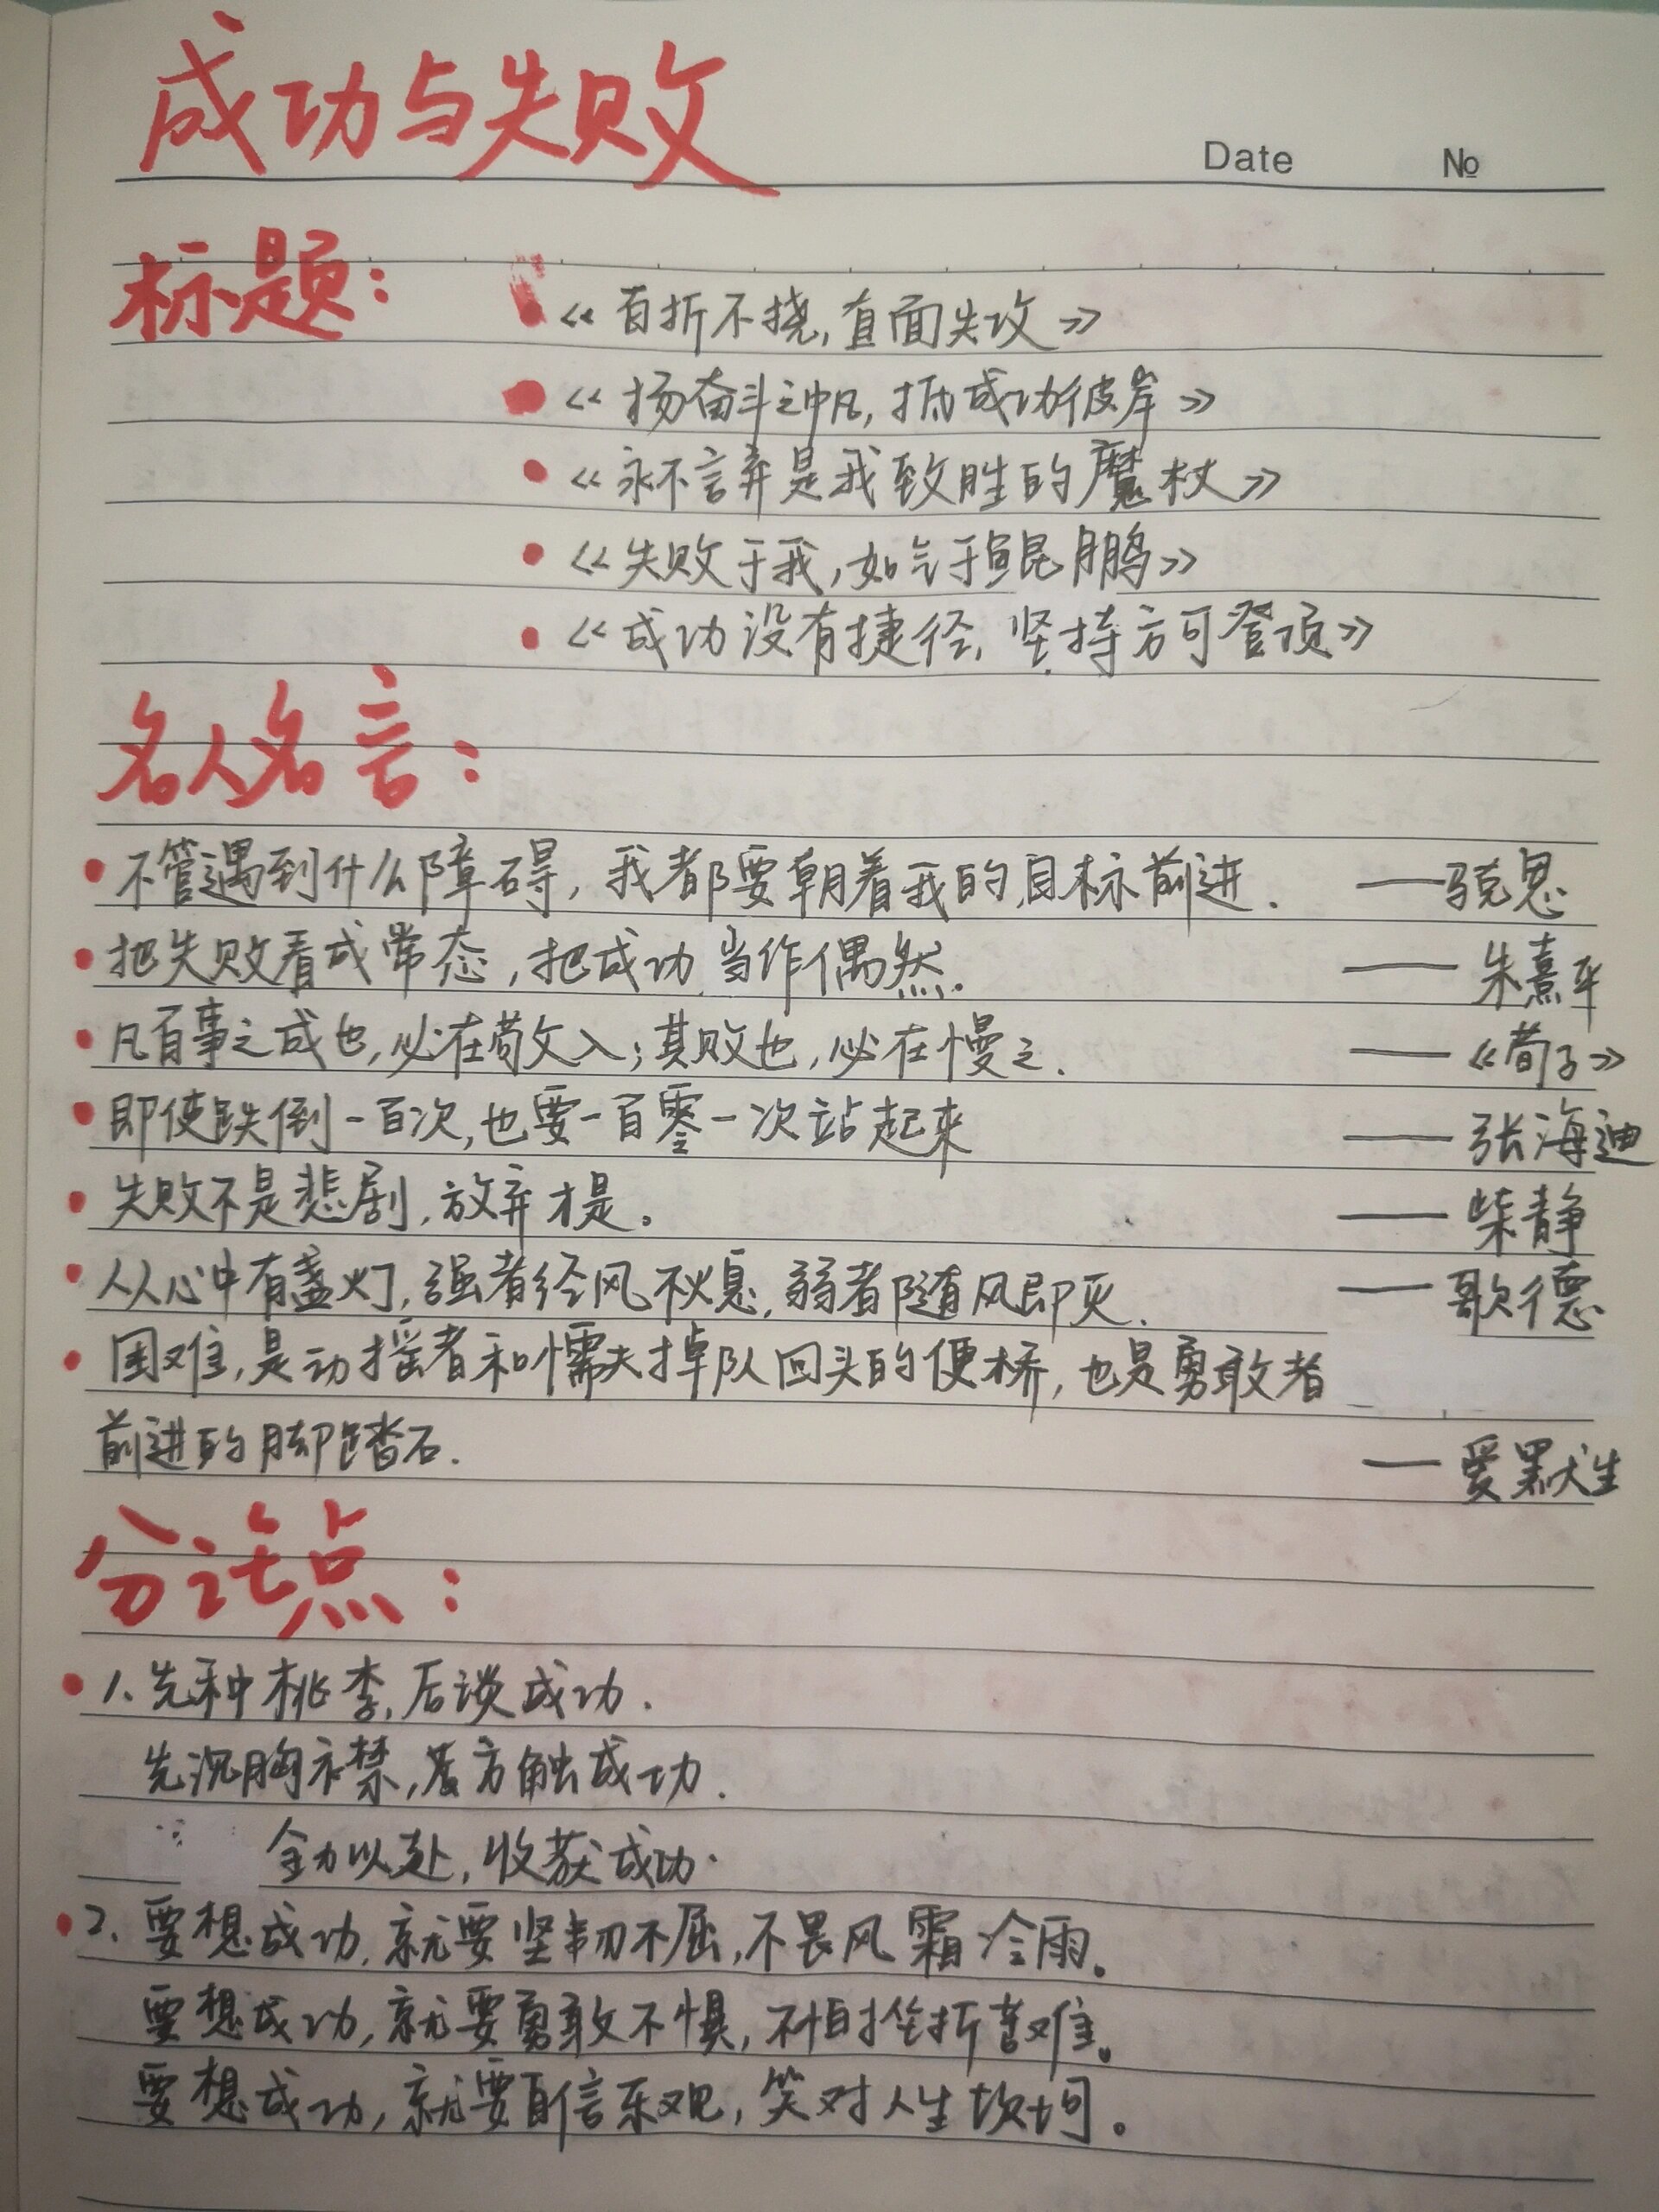 成功与失败
Date №
标题:
《百折不挠,直面失败》
《扬奋斗之帆,抵成功彼岸》
《永不言弃是我致胜的魔杖》
《失败于我,如气于鲲鹏》
《成功没有捷径,坚持方可登顶》
名人名言:
不管遇到什么障碍,我都要朝着我的目标前进. ——骁恩
把失败看成常态,把成功当作偶然. ——朱熹平
凡百事之成也,必在苟文入;其败也,必在慢之. ——《荀子》
即使跌倒一百次,也要一百零一次站起来 ——张海迪
失败不是悲剧,放弃才是。 ——柴静
人人心中有盏灯,强者经风不熄,弱者随风即灭. ——歌德
困难,是动摇者和懦夫掉队回头的便桥,也是勇敢者
前进的脚踏石. ——爱默生
分论点:
1.先种桃李,后谈成功.
先沉胸襟,方触成功.
全力以赴,收获成功.
2.要想成功,就要坚韧不屈,不畏风霜冷雨。
要想成功,就要勇敢不惧,不怕挫折苦难。
要想成功,就要自信乐观,笑对人生坎坷。